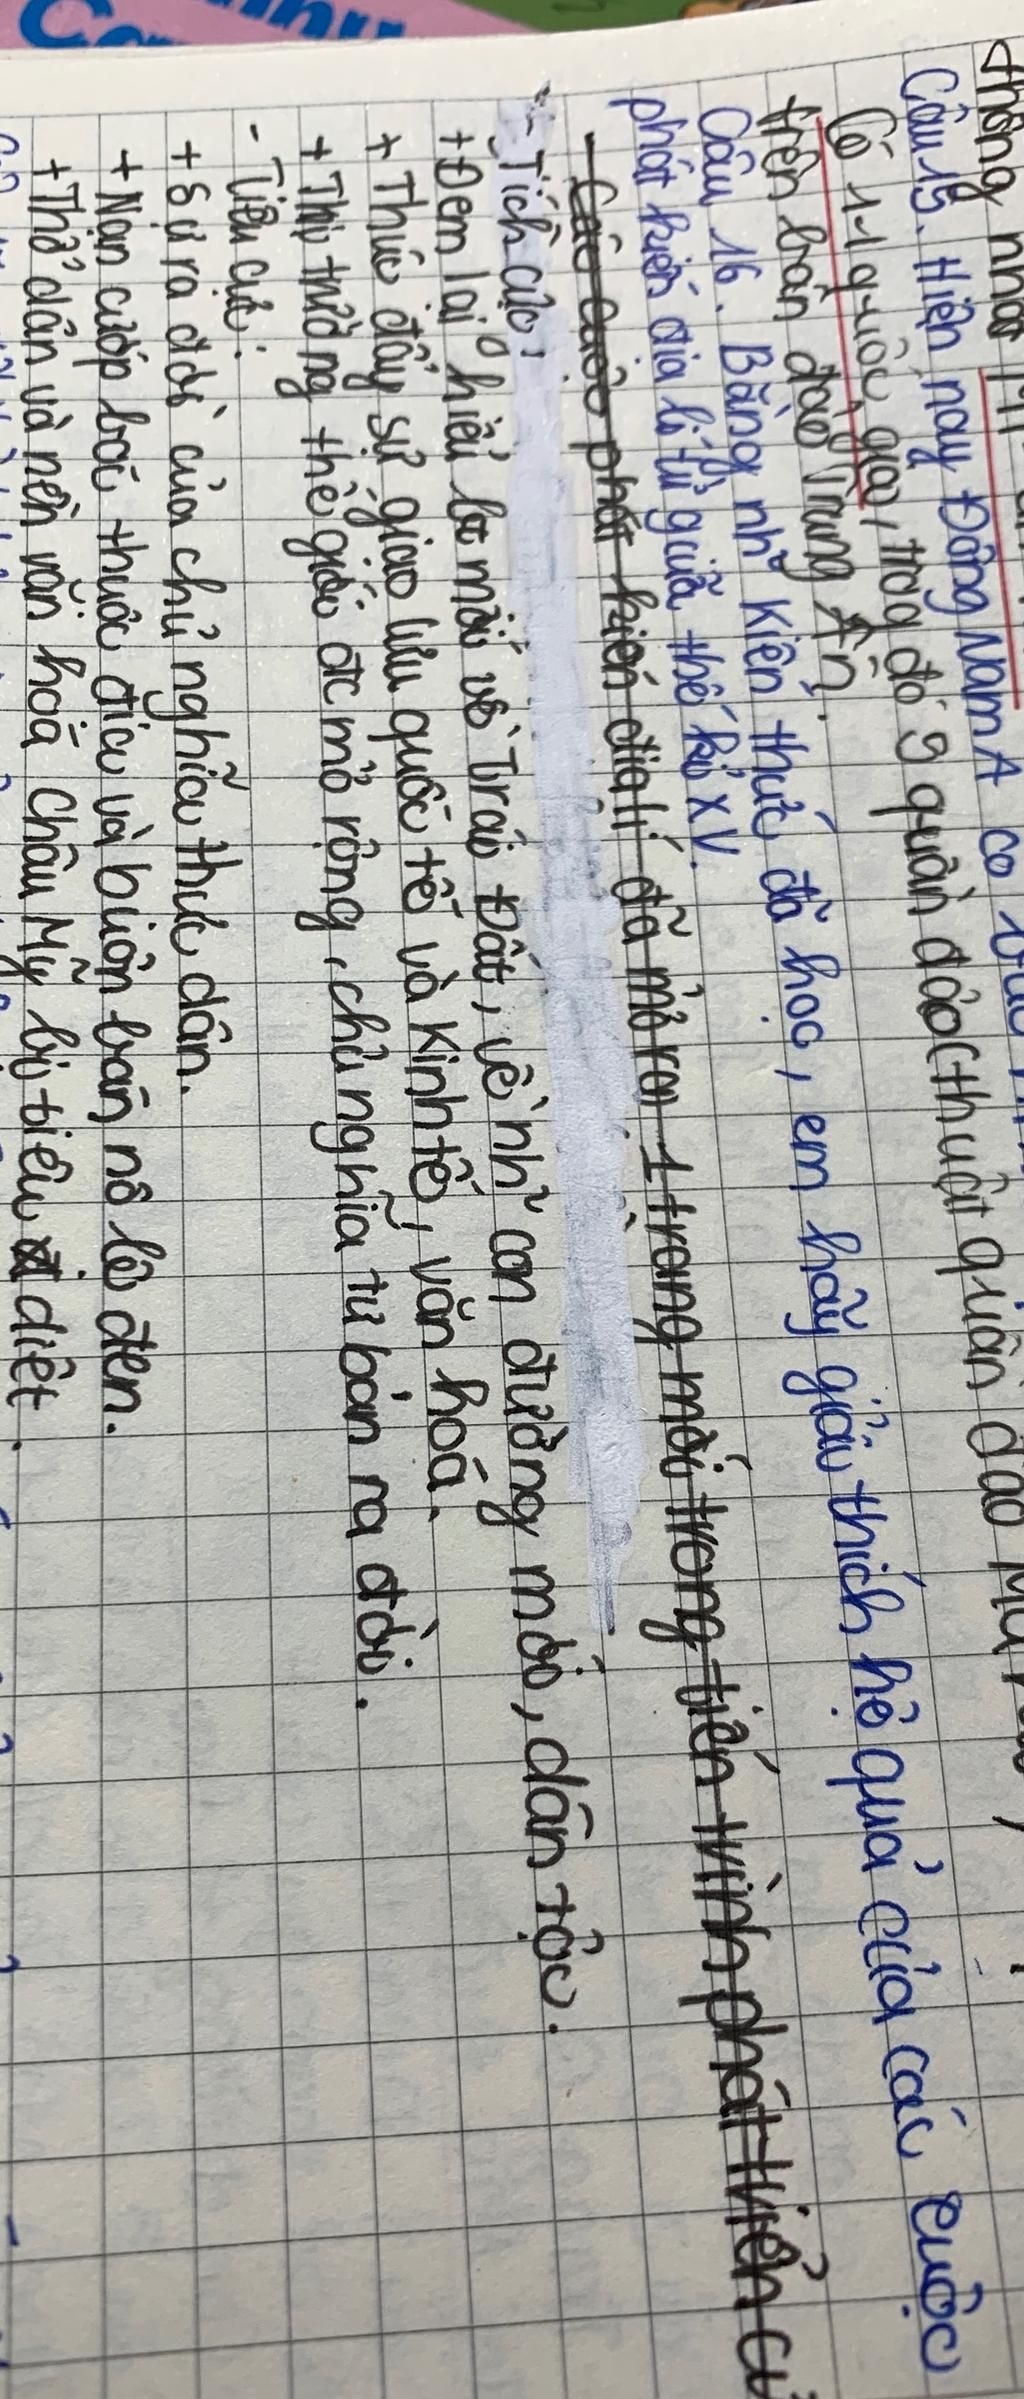 thống nhất
Câu 15. Hiện nay Đông Nam Á có
Có 11 quốc gia, trog đó 9 quần đảo (thuật quần đảo Mã
trên bán đảo Trung Ấn.
Câu 16. Bằng nh~ kiến thức đã học, em hãy giải thích hệ quả của các cuộc
phát kiến địa lí từ giữa thế kỉ XV.
- Các cuộc phát kiến địa lí đã mở ra 1 trang mới trong tiến trình phát triển
- Tích cực:
+ Đem lại hiểu bt mới về Trái Đất, về nh~ con đường mới, dân tộc.
+ Thúc đẩy sự giao lưu quốc tế và kinh tế, văn hoá.
+ Thị trường thế giới đc mở rộng, chủ nghĩa tư bản ra đời.
- Tiêu cực:
+ Sự ra đời của chủ nghĩa thực dân.
+ Nạn cướp bóc thuộc địa và buôn bán nô lệ đen.
+ Thổ dân và nền văn hoá Châu Mỹ bị tiêu diệt.